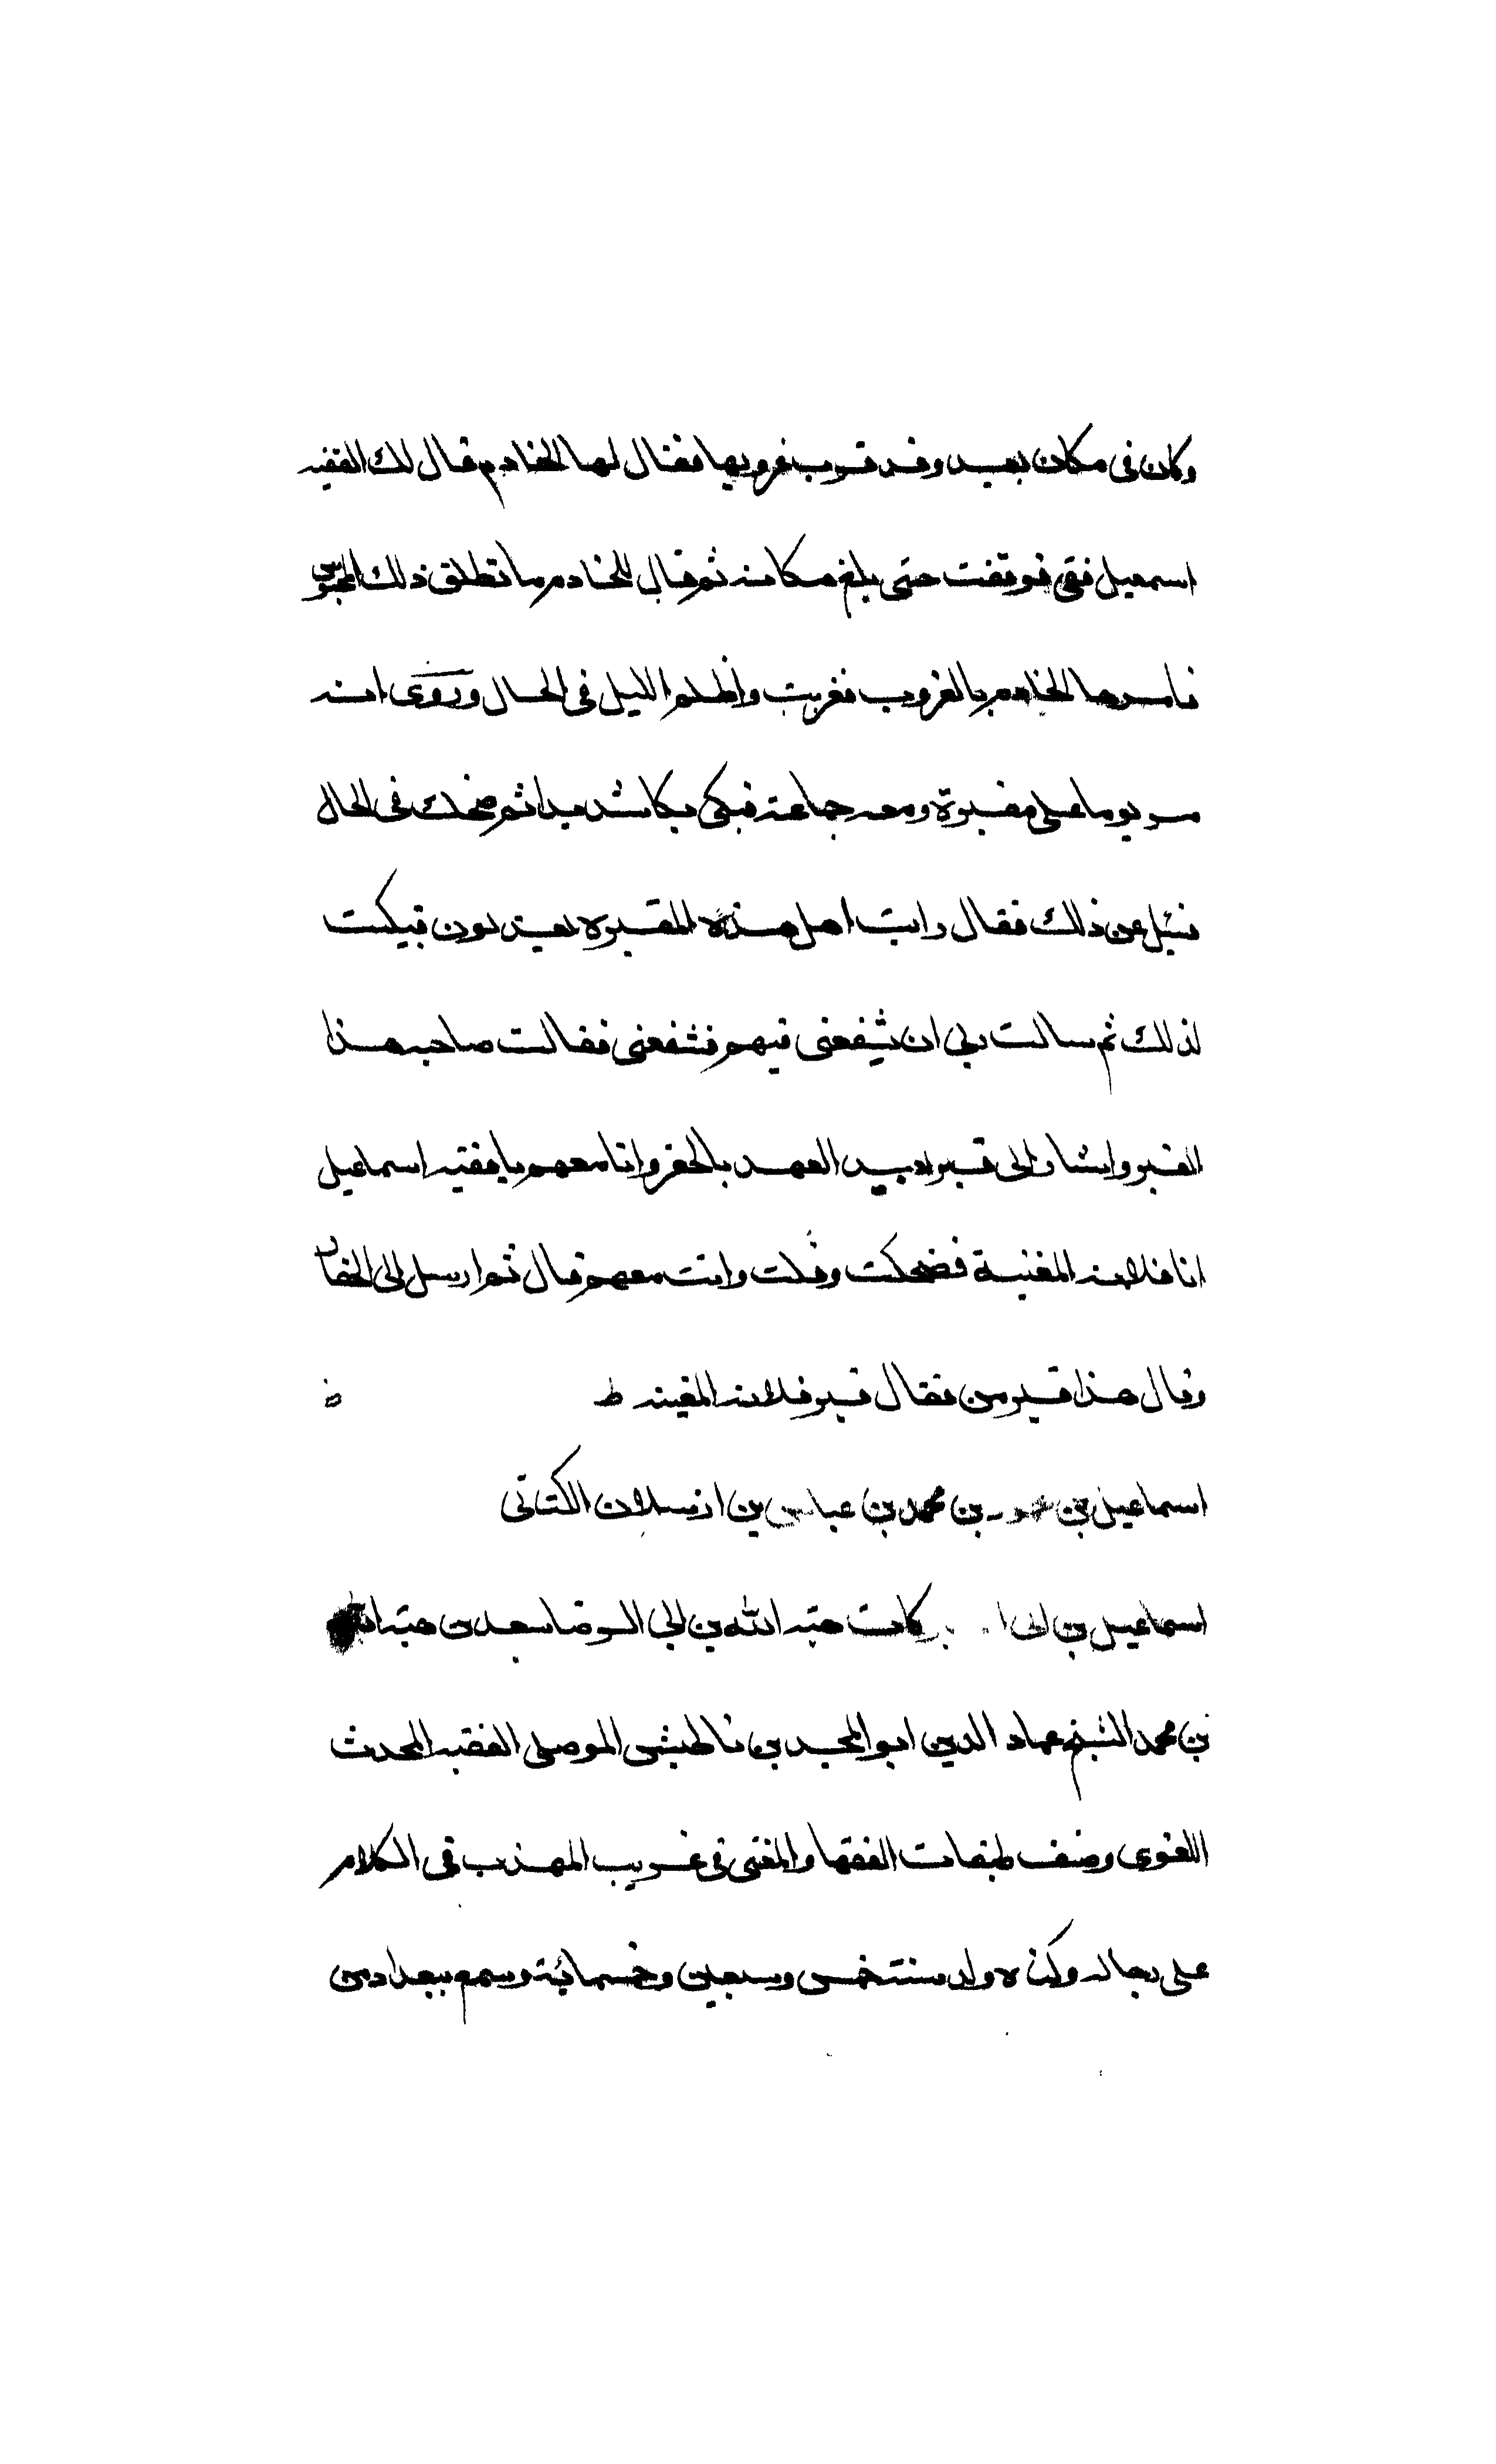 وكان في مكان بعيد وقد قرب غروبها فقال لها الخادم قال لك الفقيه
اسمعيل قفي فوقفت حتى بلغ مكانه ثم قال للخادم ما تطلق ذلك المحبوس
فامرها الخادم بالغروب فغربت واظلم الليل في الحال وروى انه
مر يوما على مقبرة ومعه جماعة فبكى بكا شديدا ثم ضحك في الحال
فسئل عن ذلك فقال رايت اهل هذه المقبره يعذبون فبكيت
لذلك ثم سالت ربي ان يشفعني فيهم فشفعني فقالت صاحبه هذا
القبر واشار الى قبر بعيد العهد بالحفر وانا معهم يا فقيه اسماعيل
انا فلانه المغنية فضحكت وقلت وانت معهم قال ثم ارسل الى الحفار
وقال هذا قبر من فقال قبر فلانه المغنيه ط
اسماعيل بن محمود بن محمد بن عباس بن ارسلان الكتاني
اسماعيل بن ابي البركات هبه الله بن ابي الرضا سعد بن هبه الله
بن محمد الشيخ عماد الدين ابو المجد بن باطيشى الموصلي الفقيه المحدث
اللغوي وصنف طبقات الفقها والمغني في غريب المهذب في الكلام
على رجاله وكناه ولد سنة خمس وسبعين وخمسمائة وسمع ببغداد من